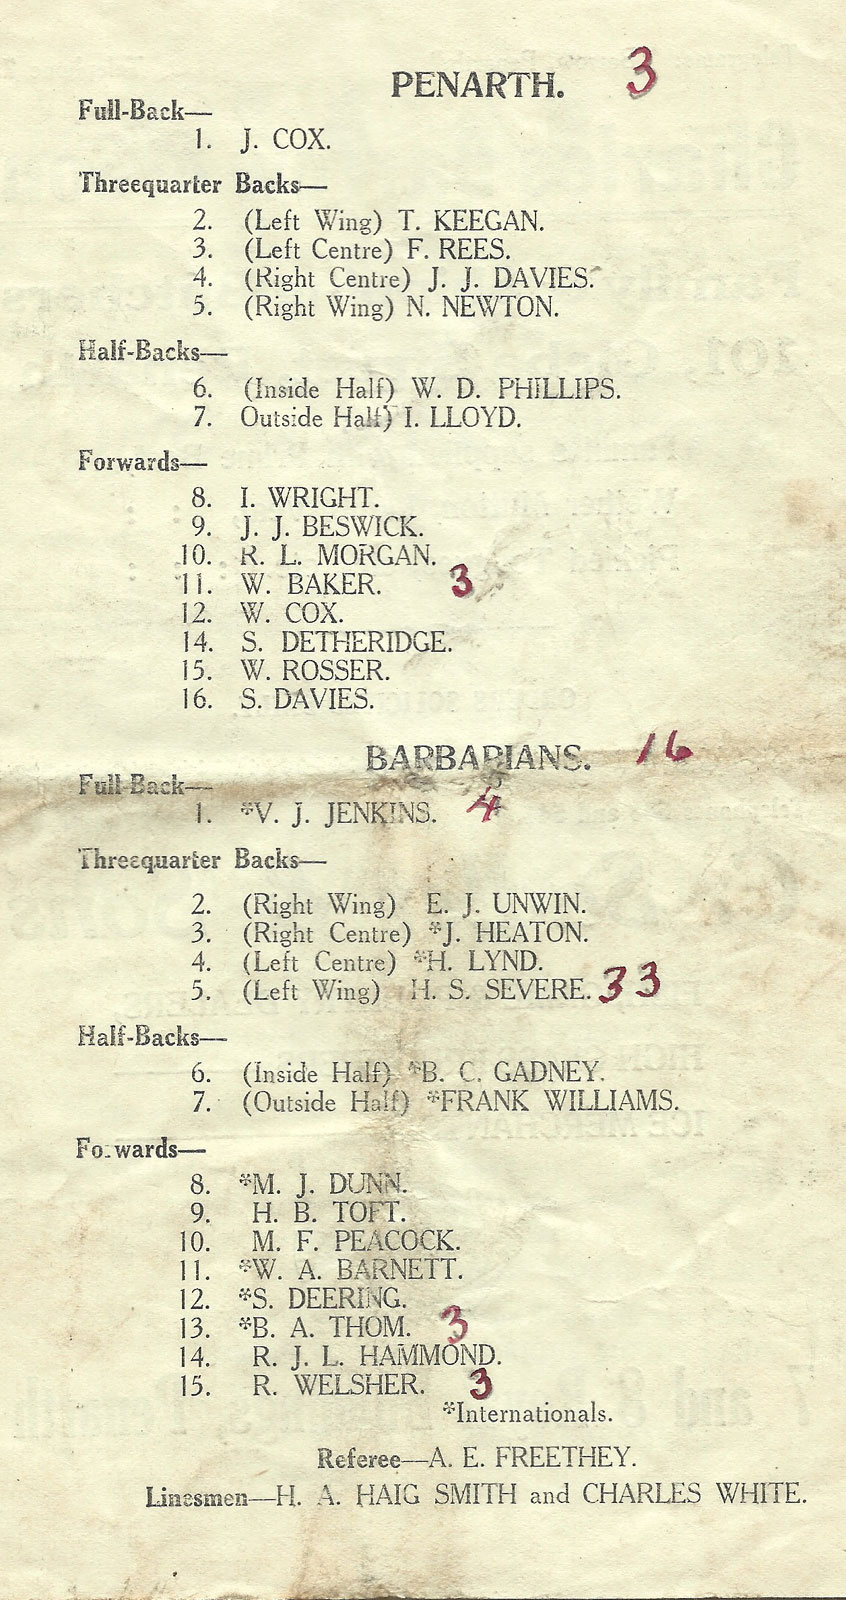 PENARTH. 3
Full-Back—
1. J. COX.
Threequarter Backs—
2. (Left Wing) T. KEEGAN.
3. (Left Centre) F. REES.
4. (Right Centre) J. J. DAVIES.
5. (Right Wing) N. NEWTON.
Half-Backs—
6. (Inside Half) W. D. PHILLIPS.
7. Outside Half) I. LLOYD.
Forwards—
8. I. WRIGHT.
9. J. J. BESWICK.
10. R. L. MORGAN.
11. W. BAKER. 3
12. W. COX.
14. S. DETHERIDGE.
15. W. ROSSER.
16. S. DAVIES.
BARBARIANS. 16
Full-Back—
1. *V. J. JENKINS. 4
Threequarter Backs—
2. (Right Wing) E. J. UNWIN.
3. (Right Centre) *J. HEATON.
4. (Left Centre) *H. LYND.
5. (Left Wing) H. S. SEVERE. 3 3
Half-Backs—
6. (Inside Half) *B. C. GADNEY.
7. (Outside Half) *FRANK WILLIAMS.
Forwards—
8. *M. J. DUNN.
9. H. B. TOFT.
10. M. F. PEACOCK.
11. *W. A. BARNETT.
12. *S. DEERING.
13. *B. A. THOM. 3
14. R. J. L. HAMMOND.
15. R. WELSHER. 3
*Internationals.
Referee—A. E. FREETHEY.
Linesmen—H. A. HAIG SMITH and CHARLES WHITE.